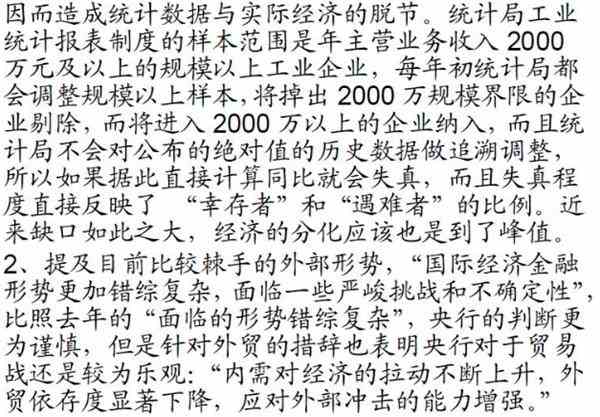 因而造成统计数据与实际经济的脱节。统计局工业
统计报表制度的样本范围是年主营业务收入 2000
万元及以上的规模以上工业企业，每年初统计局都
会调整规模以上样本，将掉出 2000 万规模界限的企
业剔除，而将进入 2000 万以上的企业纳入，而且统
计局不会对公布的绝对值的历史数据做追溯调整，
所以如果据此直接计算同比就会失真，而且失真程
度直接反映了 “幸存者”和“遇难者”的比例。近
来缺口如此之大，经济的分化应该也是到了峰值。
2、提及目前比较棘手的外部形势，“国际经济金融
形势更加错综复杂，面临一些严峻挑战和不确定性”，
比照去年的“面临的形势错综复杂”，央行的判断更
为谨慎，但是针对外贸的措辞也表明央行对于贸易
战还是较为乐观：“内需对经济的拉动不断上升，外
贸依存度显著下降，应对外部冲击的能力增强。”